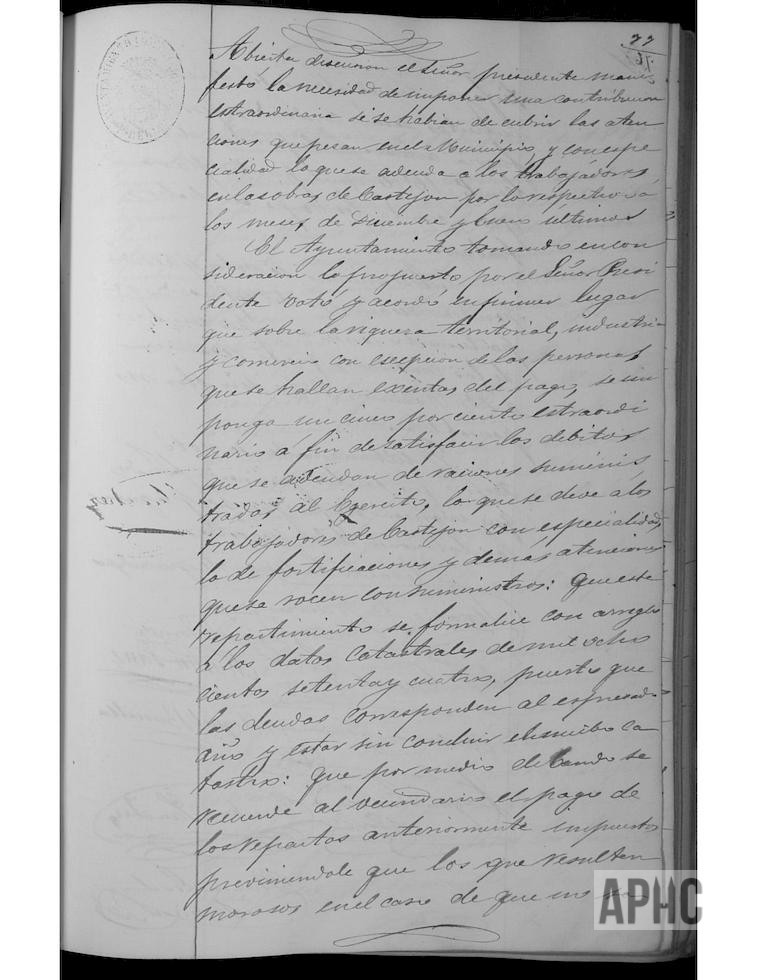 77
Abierta discusion el Señor presidente mani-
festo la necesidad de imponer una contribucion
estraordinaria si se habian de cubrir las aten
ciones que pesan en el Municipio, y con espe
cialidad lo que se adeuda a los trabajadores
en las obras de Castejon por lo respectivo á
los meses de Diciembre y Enero ultimos
El Ayuntamiento tomando en con
sideracion lo propuesto por el Señor Presi
dente votó y acordó en primer lugar
que sobre la riqueza territorial, industria
y comercio con escepcion de las personas
que se hallan exentas del pago, se im
ponga un cinco por ciento estraordi
nario á fin de satisfacer los debitos
que se adeudan de raciones suminis
trados al Ejercito, lo que se deve a los
trabajadores de Castejon con especialidad,
lo de fortificaciones y demás atenciones
que se rocen con suministros: que este
repartimiento se formalice con arreglo
á los datos catastrales de mil ocho
cientos setenta y cuatro, puesto que
las deudas corresponden al espresado
año y estar sin concluir el nuebo ca
tastro: que por medio de bando se
recuerde al vecindario el pago de
los repartos anteriormente impuestos
previniendole que los que resulten
morosos en el caso de que no
APHC